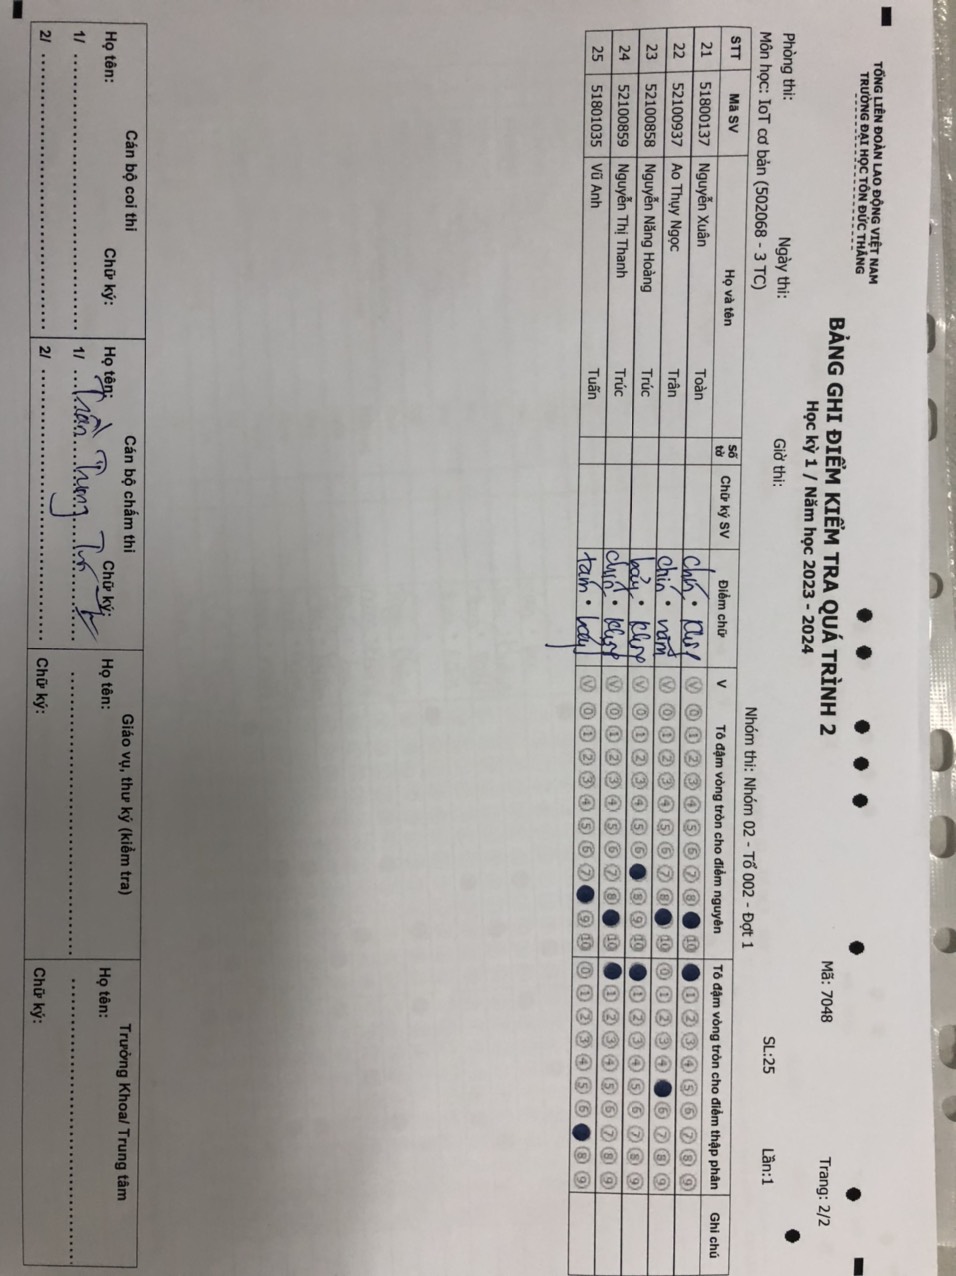 TỔNG LIÊN ĐOÀN LAO ĐỘNG VIỆT NAM
TRƯỜNG ĐẠI HỌC TÔN ĐỨC THẮNG
BẢNG GHI ĐIỂM KIỂM TRA QUÁ TRÌNH 2
Học kỳ 1 / Năm học 2023 - 2024
Mã: 7048 Trang: 2/2
Phòng thi: Ngày thi: Giờ thi: SL:25 Lần:1
Môn học: IoT cơ bản (502068 - 3 TC) Nhóm thi: Nhóm 02 - Tổ 002 - Đợt 1
STT Mã SV Họ và tên Số tờ Chữ ký SV Điểm chữ V Tô đậm vòng tròn cho điểm nguyên Tô đậm vòng tròn cho điểm thập phân Ghi chú
21 51800137 Nguyễn Xuân Toàn chín . không V 0 1 2 3 4 5 6 7 8 10 1 2 3 4 5 6 7 8 9
22 52100937 Ao Thụy Ngọc Trân chín . năm V 0 1 2 3 4 5 6 7 8 10 0 1 2 3 4 6 7 8 9
23 52100858 Nguyễn Năng Hoàng Trúc bảy . không V 0 1 2 3 4 5 6 8 9 10 1 2 3 4 5 6 7 8 9
24 52100859 Nguyễn Thị Thanh Trúc chín . không V 0 1 2 3 4 5 6 7 8 10 1 2 3 4 5 6 7 8 9
25 51801035 Vũ Anh Tuấn tám . bảy V 0 1 2 3 4 5 6 7 9 10 0 1 2 3 4 5 6 8 9
Cán bộ coi thi Cán bộ chấm thi Giáo vụ, thư ký (kiểm tra) Trưởng Khoa/ Trung tâm
Họ tên: Chữ ký: Họ tên: Chữ ký: Họ tên: Họ tên:
1/ 1/ Trần Trung Tín
2/ 2/ Chữ ký: Chữ ký: